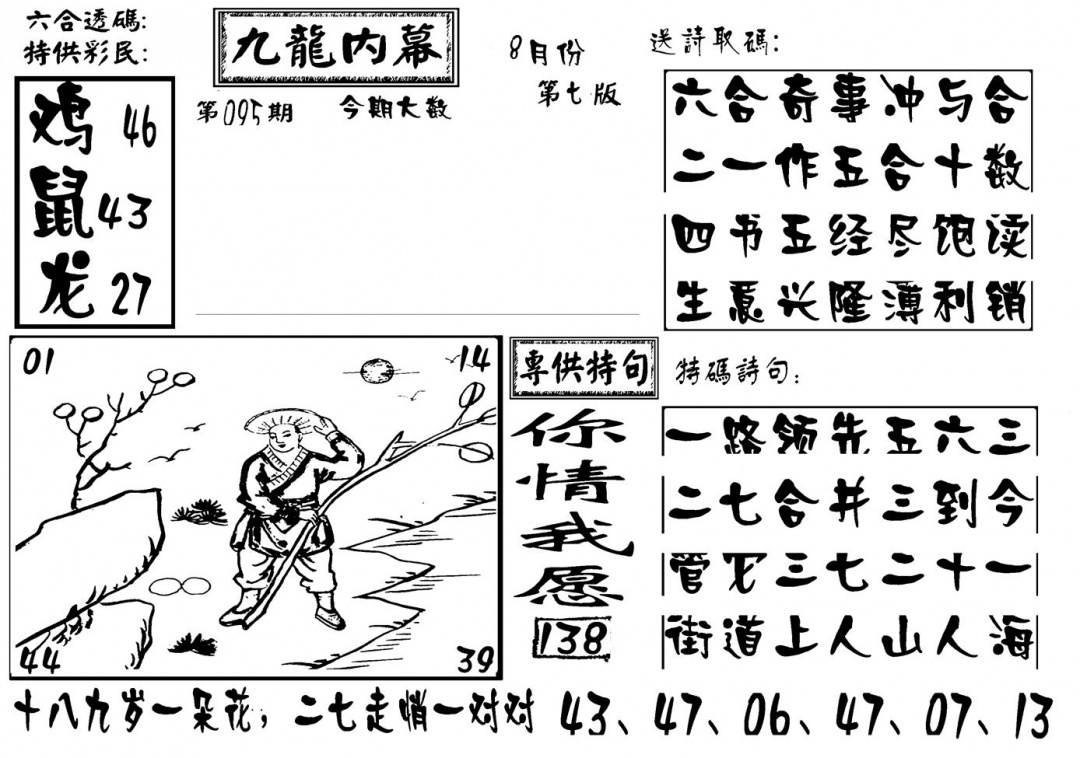 六合透碼:
特供彩民:
鸡 46
鼠 43
龙 27
九龍内幕
第095期 今期大数
8月份
第七版
送詩取碼:
六合奇事冲与合
二一作五合十数
四书五经尽饱读
生意兴隆薄利销
01
14
44
39
專供特句
你
情
我
愿
138
特碼詩句:
一路领先五六三
二七合井三到今
管它三七二十一
街道上人山人海
十八九岁一朵花, 二七走悄一对对 43、47、06、47、07、13